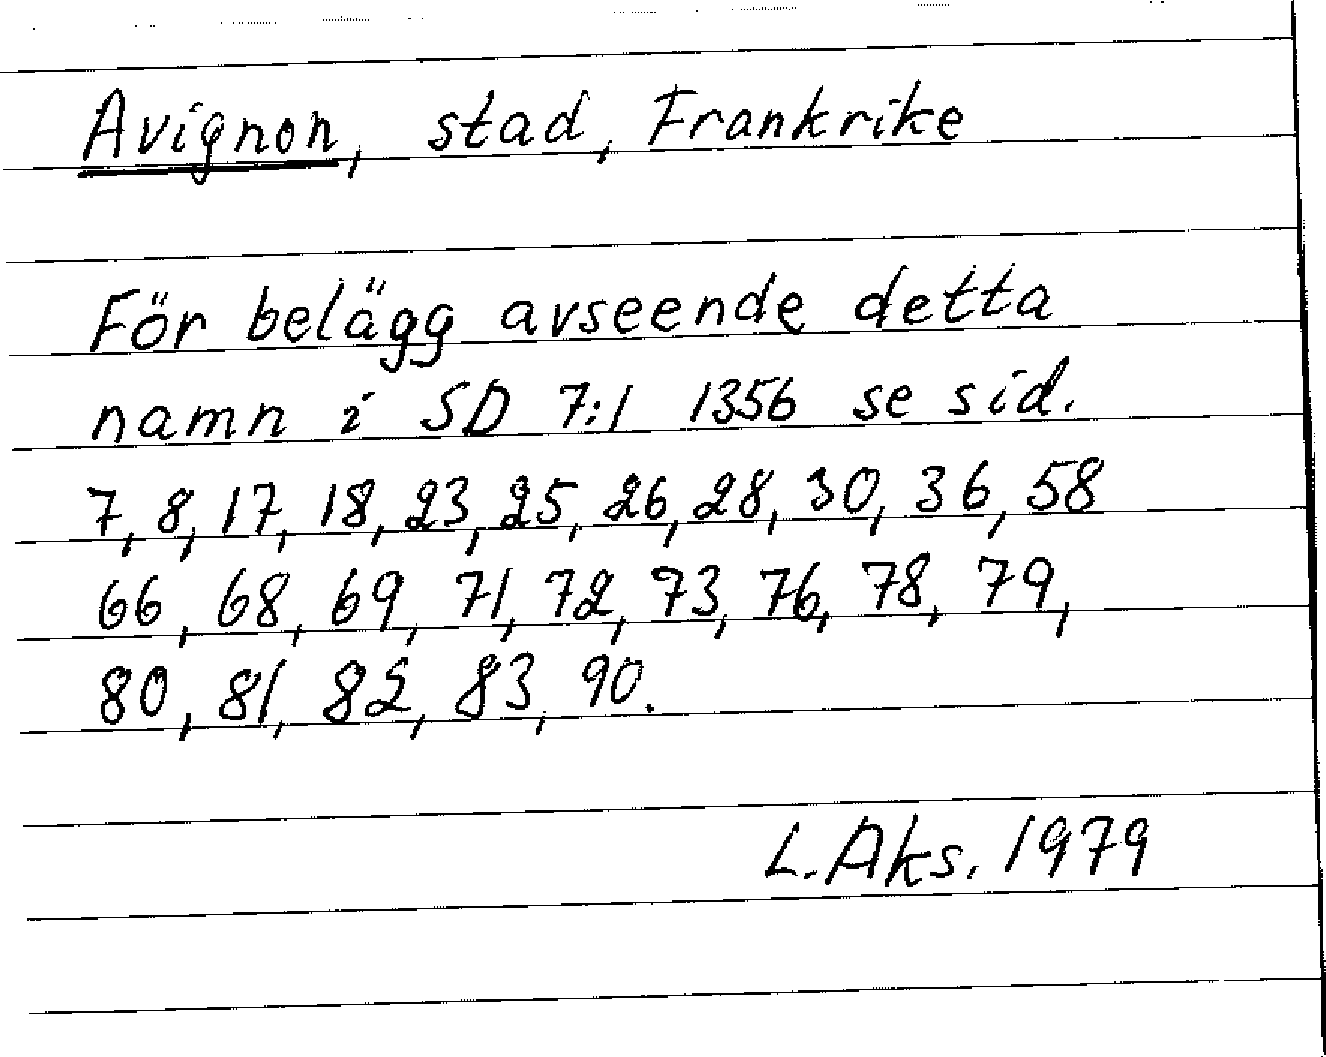 Avignon, stad, Frankrike
För belägg avseende detta
namn i SD 7:1 1356 se sid.
7, 8, 17, 18, 23, 25, 26, 28, 30, 36, 58
66, 68, 69, 71, 72, 73, 76, 78, 79,
80, 81, 82, 83, 90.
L. Aks. 1979